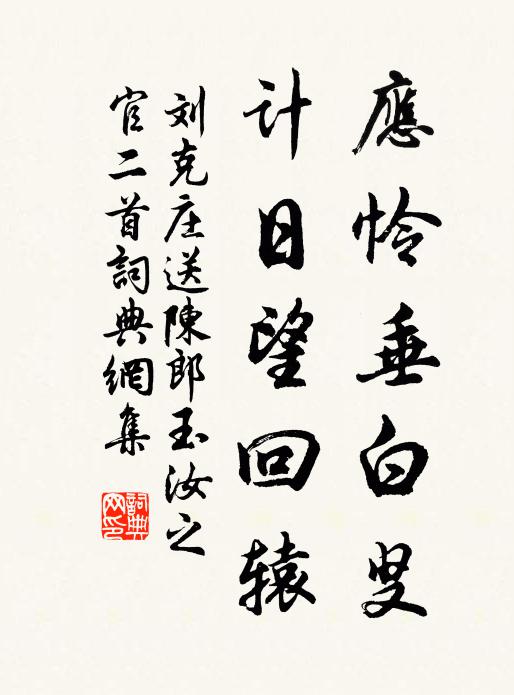 應怜垂白叟
计日望回辕
刘克庄送陳郎玉汝之
官二首詞典網集
詞典网印